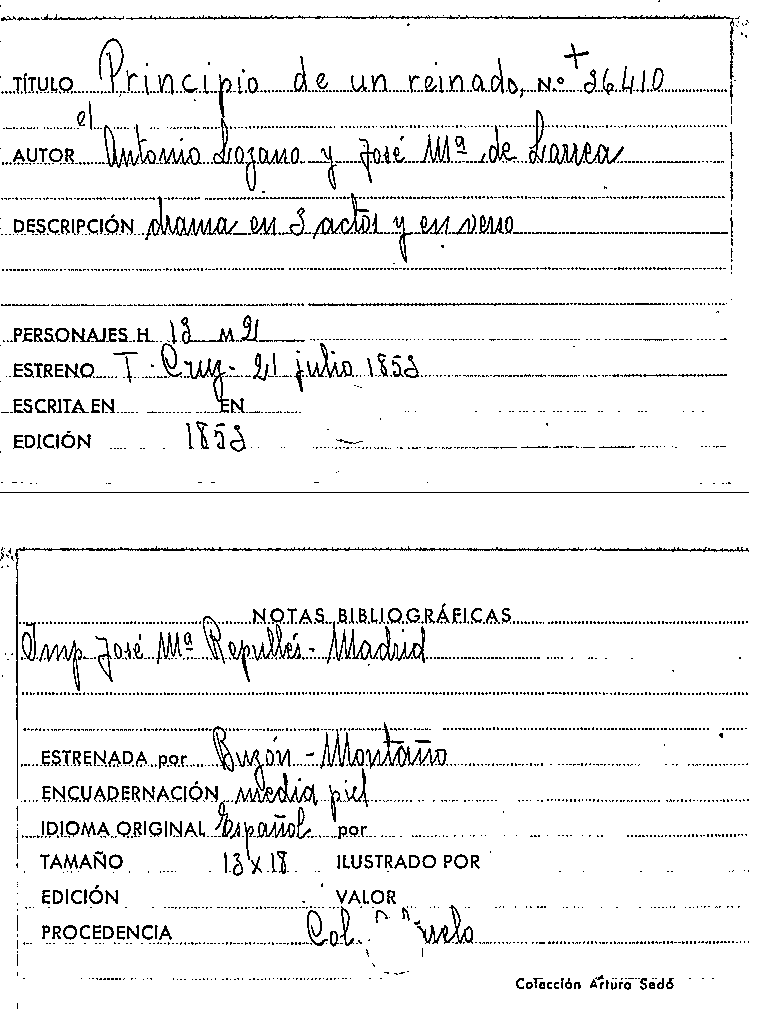 TÍTULO Principio de un reinado, N.º + 36410
el
AUTOR Antonio Lozano y José Mª de Larrea
DESCRIPCIÓN drama en 3 actos y en verso
PERSONAJES H 13 M 2
ESTRENO T. Cruz - 21 julio 1853
ESCRITA EN EN
EDICIÓN 1853
NOTAS BIBLIOGRÁFICAS
Imp. José Mª Repullés - Madrid
ESTRENADA por Buzón - Montaño
ENCUADERNACIÓN media piel
IDIOMA ORIGINAL Español por
TAMAÑO 13 x 18 ILUSTRADO POR
EDICIÓN VALOR
PROCEDENCIA Col.
Colección Arturo Sedó